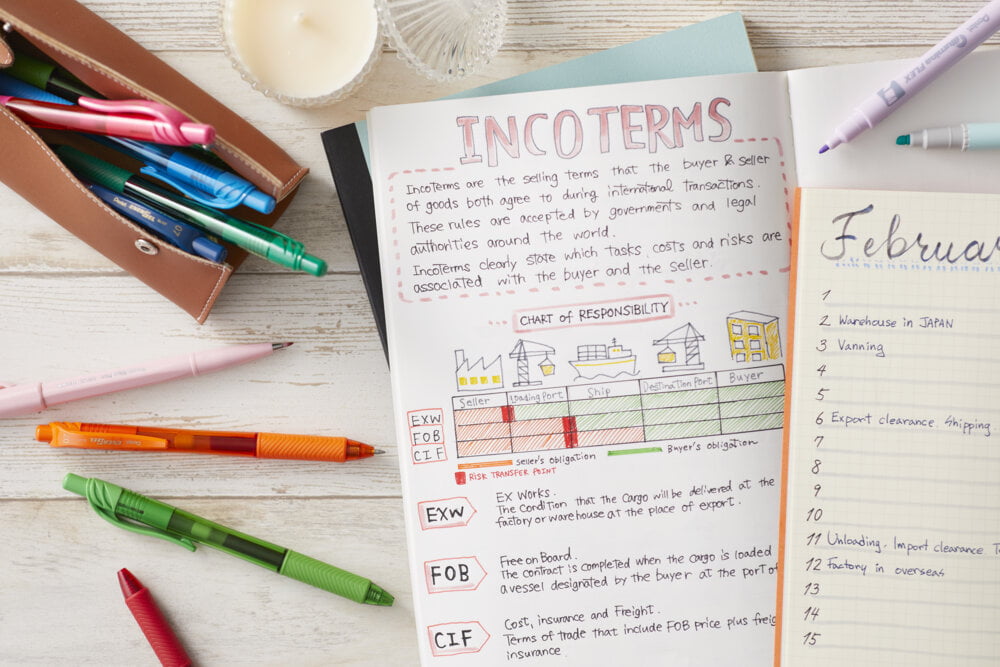 INCOTERMS
Incoterms are the selling terms that the buyer & seller
of goods both agree to during international transactions.
These rules are accepted by governments and legal
authorities around the world.
Incoterms clearly state which tasks, costs and risks are
associated with the buyer and the seller.
CHART of RESPONSIBILITY
Seller Loading Port Ship Destination Port Buyer
EXW
FOB
CIF
Seller's obligation Buyer's obligation
RISK TRANSFER POINT
EXW
EX Works.
The Condition that the Cargo will be delivered at the
factory or warehouse at the place of export.
FOB
Free on Board.
The contract is completed when the cargo is loaded
a vessel designated by the buyer at the port of
CIF
Cost, insurance and Freight.
Terms of trade that include FOB price plus freig
insurance.
Februa
1
2 Warehouse in JAPAN
3 Vanning
4
5
6 Export clearance. Shipping
7
8
9
10
11 Unloading. Import clearance T
12 factory in overseas
13
14
15